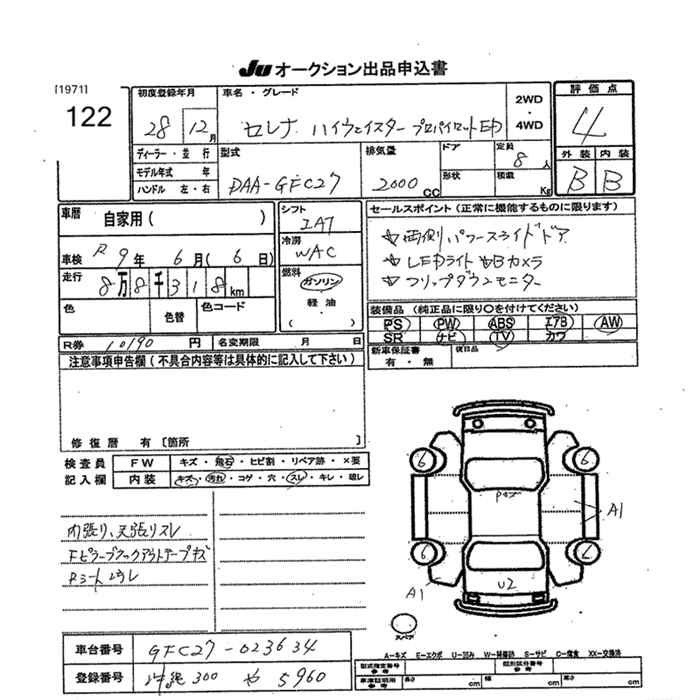 JU オークション出品申込書
[1971]
122
初度登録年月
28 12月
車名・グレード
セレナ ハイウェイスター プロパイロットED
2WD
・
4WD
評価点
4
外装 内装
B B
ディーラー・並行
モデル年式 年
ハンドル 左・右
型式
DAA-GFC27
排気量
2000 CC
ドア
形状
定員
8人
積載
Kg
車歴
自家用( )
車検 R 9年 6月( 6日)
走行
8万8千318km
色
色替
色コード
R券 10190円
名変期限 月 日
シフト
IAT
冷房
WAC
燃料
ガソリン
軽油
( )
セールスポイント(正常に機能するものに限ります)
☆両側パワースライドドア
☆LEDライト ☆Bカメラ
☆フリップダウンモニター
装備品(純正品に限り○を付けてください)
PS PW ABS エアB AW
SR ナビ TV カワ
新車保証書
有・無
後日品
注意事項申告欄(不具合内容等は具体的に記入して下さい)
修復歴 有[箇所 ]
検査員
記入欄
FW キズ・飛石・ヒビ割・リペア跡・×要
内装 キズ・汚れ・コゲ・穴・スレ・キレ・破レ
内張り、天張りスレ
Fピラーブラックアウトテープキズ
Rシート
6 6
6
A1
A1
U2
スペア
A-キズ E-エクボ U-凹み W-補修跡 S-サビ C-腐食 XX-交換済
車台番号 GFC27-023634
登録番号 300 や 5960
型式指定番号
参考
類別区分番号
参考
車庫証明用
参考
長さ cm 幅 cm 高さ cm